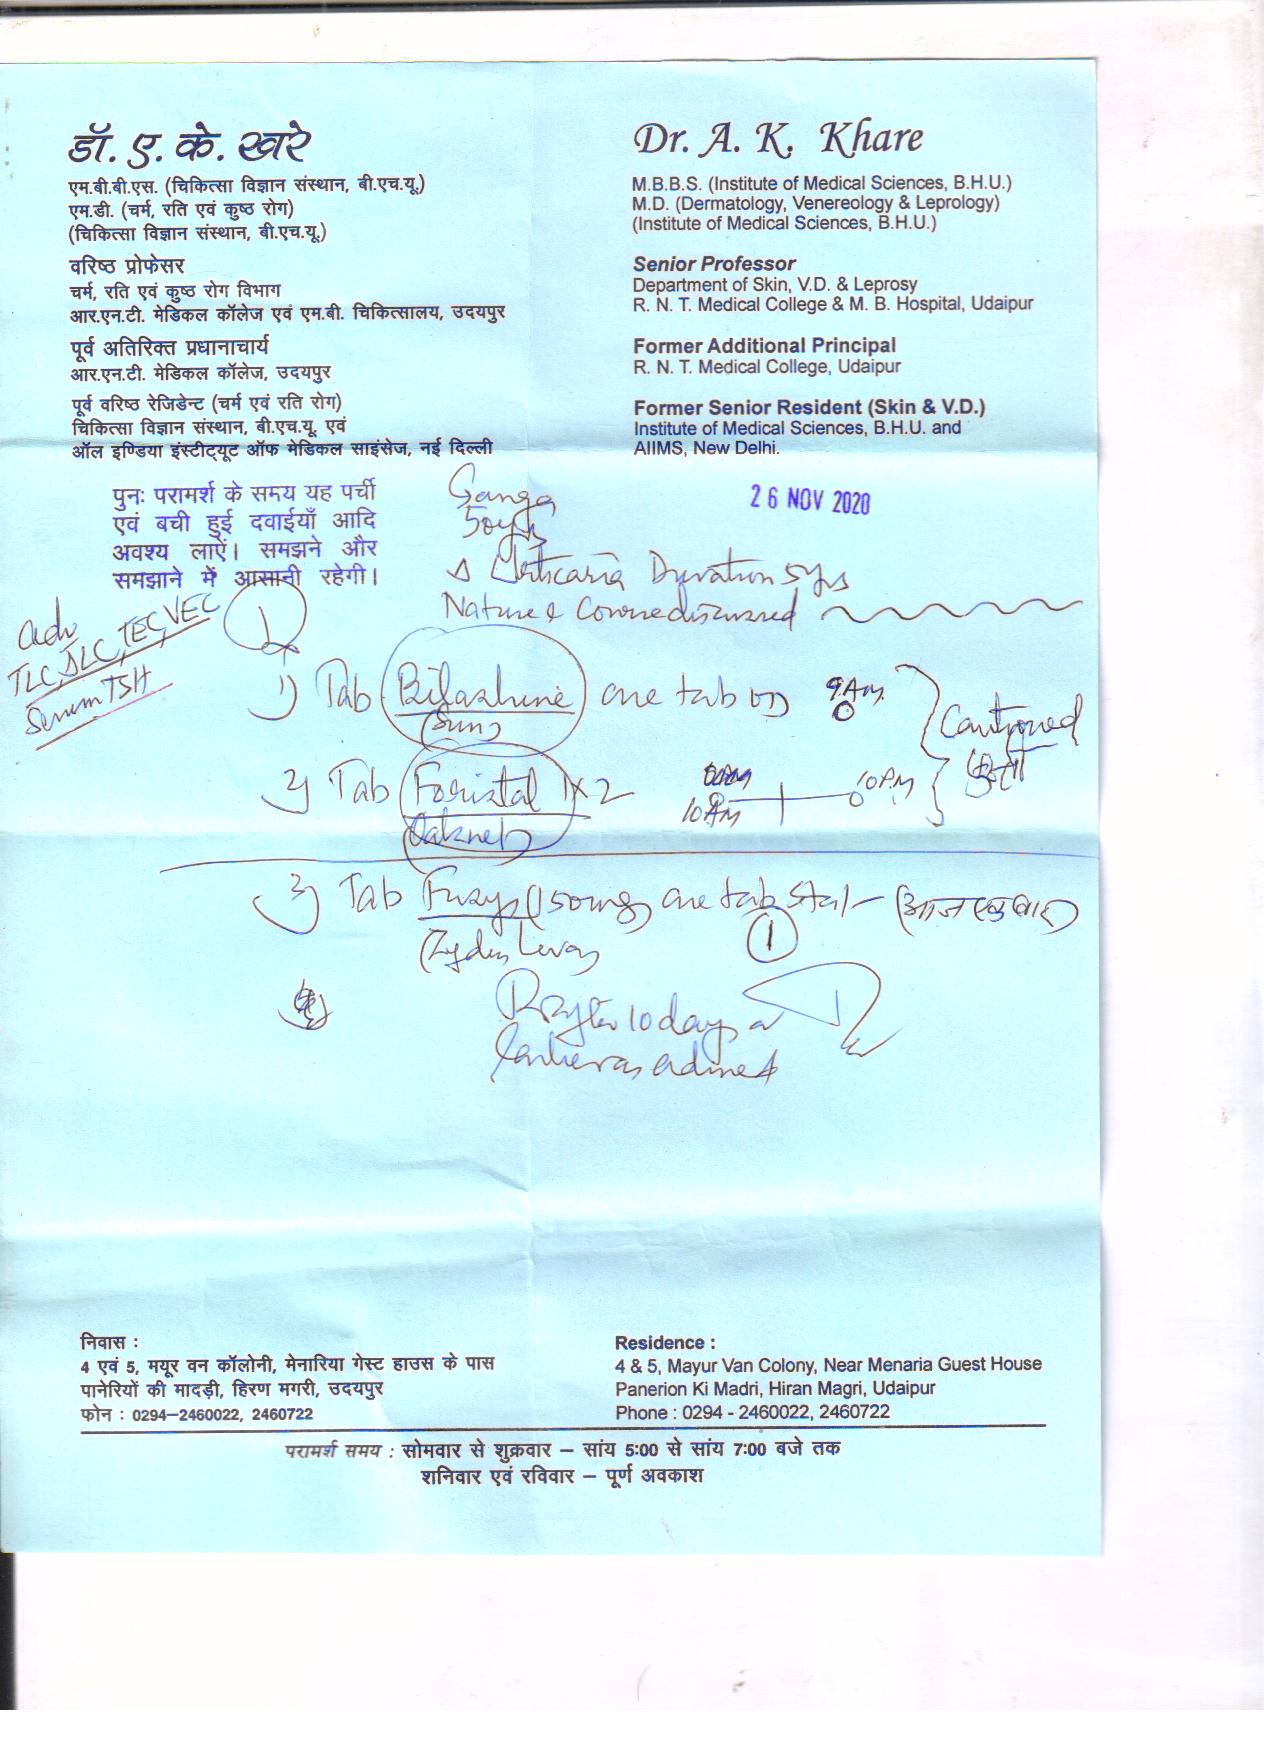 डॉ. ए. के. खरे
एम.बी.बी.एस. (चिकित्सा विज्ञान संस्थान, बी.एच.यू.)
एम.डी. (चर्म, रति एवं कुष्ठ रोग)
(चिकित्सा विज्ञान संस्थान, बी.एच.यू.)
वरिष्ठ प्रोफेसर
चर्म, रति एवं कुष्ठ रोग विभाग
आर.एन.टी. मेडिकल कॉलेज एवं एम.बी. चिकित्सालय, उदयपुर
पूर्व अतिरिक्त प्रधानाचार्य
आर.एन.टी. मेडिकल कॉलेज, उदयपुर
पूर्व वरिष्ठ रेजिडेन्ट (चर्म एवं रति रोग)
चिकित्सा विज्ञान संस्थान, बी.एच.यू. एवं
ऑल इण्डिया इंस्टीट्यूट ऑफ मेडिकल साइंसेज, नई दिल्ली
Dr. A. K. Khare
M.B.B.S. (Institute of Medical Sciences, B.H.U.)
M.D. (Dermatology, Venereology & Leprology)
(Institute of Medical Sciences, B.H.U.)
Senior Professor
Department of Skin, V.D. & Leprosy
R. N. T. Medical College & M. B. Hospital, Udaipur
Former Additional Principal
R. N. T. Medical College, Udaipur
Former Senior Resident (Skin & V.D.)
Institute of Medical Sciences, B.H.U. and
AIIMS, New Delhi.
पुनः परामर्श के समय यह पर्ची
एवं बची हुई दवाईयाँ आदि
अवश्य लाऐं। समझने और
समझाने में आसानी रहेगी।
Ganga
26 NOV 2020
50y
Urticaria Duration 5yrs
Nature & Course discussed
adv
TLC, DLC, TEC, VEC
Serum TSH
1) Tab Bilashine one tab OD 9AM
(Sun)
Cautioned
2) Tab Foristal 1x2 10AM 10PM
3) Tab (150mg) one tab stat - (आज एक बार)
1
10 days
निवास :
4 एवं 5, मयूर वन कॉलोनी, मेनारिया गेस्ट हाउस के पास
पानेरियों की मादड़ी, हिरण मगरी, उदयपुर
फोन : 0294–2460022, 2460722
Residence :
4 & 5, Mayur Van Colony, Near Menaria Guest House
Panerion Ki Madri, Hiran Magri, Udaipur
Phone : 0294 - 2460022, 2460722
परामर्श समय : सोमवार से शुक्रवार – सांय 5:00 से सांय 7:00 बजे तक
शनिवार एवं रविवार – पूर्ण अवकाश